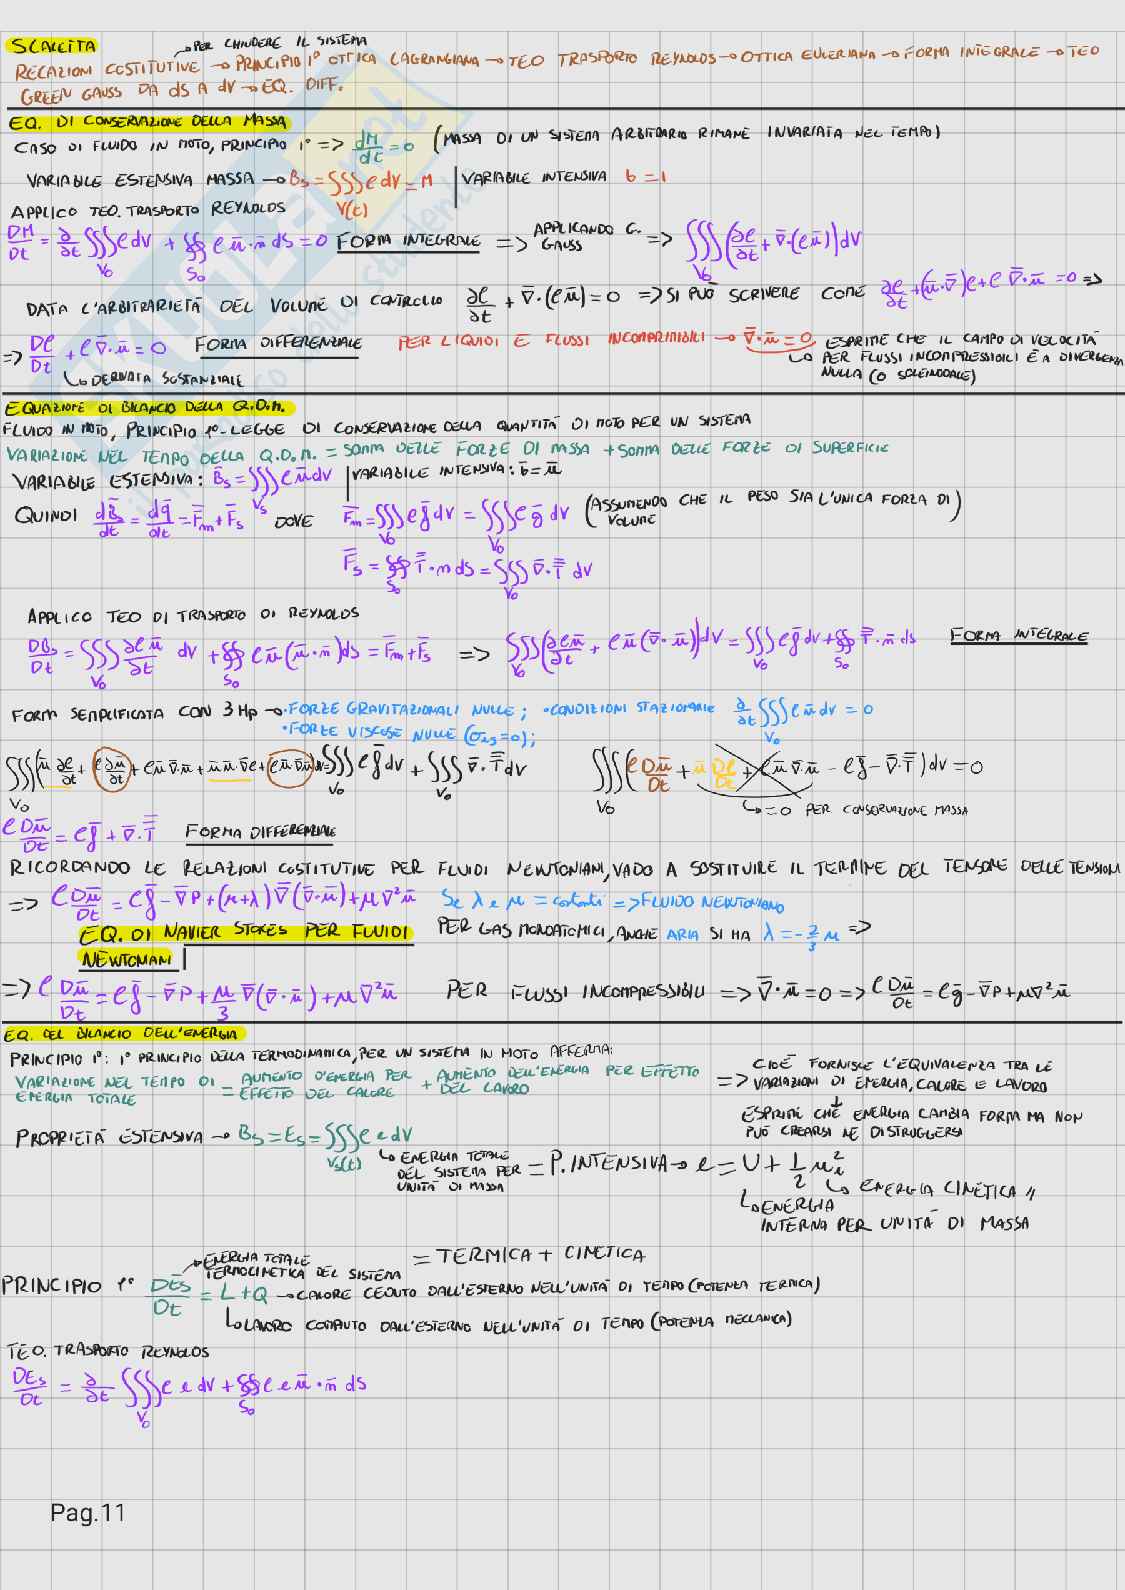 SCALETTA
PER CHIUDERE IL SISTEMA
RELAZIONI COSTITUTIVE → PRINCIPIO 1° OTTICA LAGRANGIANA → TEO TRASPORTO REYNOLDS → OTTICA EULERIANA → FORMA INTEGRALE → TEO
GREEN GAUSS DA dS A dV → EQ. DIFF.
EQ. DI CONSERVAZIONE DELLA MASSA
CASO DI FLUIDO IN MOTO, PRINCIPIO 1° => dM/dt = 0 (MASSA DI UN SISTEMA ARBITRARIO RIMANE INVARIATA NEL TEMPO)
VARIABILE ESTENSIVA MASSA → Bs = ∭_V(t) ρ dV = M | VARIABILE INTENSIVA b = 1
APPLICO TEO. TRASPORTO REYNOLDS
DM/Dt = ∂/∂t ∭_V₀ ρ dV + ∯_S₀ ρ ū·n̄ dS = 0 FORMA INTEGRALE => APPLICANDO G. GAUSS => ∭_V₀ (∂ρ/∂t + ∇̄·(ρū)) dV
DATA L'ARBITRARIETÀ DEL VOLUME DI CONTROLLO ∂ρ/∂t + ∇̄·(ρū) = 0 => SI PUÒ SCRIVERE COME ∂ρ/∂t + (ū·∇̄)ρ + ρ ∇̄·ū = 0 =>
=> Dρ/Dt + ρ ∇̄·ū = 0 FORMA DIFFERENZIALE PER LIQUIDI E FLUSSI INCOMPRIMIBILI → ∇̄·ū = 0, ESPRIME CHE IL CAMPO DI VELOCITÀ
PER FLUSSI INCOMPRESSIBILI È A DIVERGENZA
NULLA (O SOLENOIDALE)
DERIVATA SOSTANZIALE
EQUAZIONE DI BILANCIO DELLA Q.D.M.
FLUIDO IN MOTO, PRINCIPIO 1° - LEGGE DI CONSERVAZIONE DELLA QUANTITÀ DI MOTO PER UN SISTEMA
VARIAZIONE NEL TEMPO DELLA Q.D.M. = SOMMA DELLE FORZE DI MASSA + SOMMA DELLE FORZE DI SUPERFICIE
VARIABILE ESTENSIVA: B̄s = ∭_Vs ρ ū dV | VARIABILE INTENSIVA: b̄ = ū
QUINDI dB̄s/dt = dq̄/dt = F̄m + F̄s DOVE F̄m = ∭_V₀ ρ f̄ dV = ∭_V₀ ρ ḡ dV (ASSUMENDO CHE IL PESO SIA L'UNICA FORZA DI VOLUME)
F̄s = ∯_S₀ T̿·n dS = ∭_V₀ ∇̄·T̿ dV
APPLICO TEO DI TRASPORTO DI REYNOLDS
DBs/Dt = ∭_V₀ ∂ρū/∂t dV + ∯_S₀ ρū(ū·n̄)dS = F̄m + F̄s => ∭_V₀ (∂ρū/∂t + ρū(∇̄·ū)) dV = ∭_V₀ ρ f̄ dV + ∯_S₀ T̿·n̄ dS FORMA INTEGRALE
FORM SEMPLIFICATA CON 3 Hp → ·FORZE GRAVITAZIONALI NULLE; ·CONDIZIONI STAZIONARIE ∂/∂t ∭_V₀ ρ ū dV = 0
·FORZE VISCOSE NULLE (σ_es = 0);
∭_V₀ (ū ∂ρ/∂t + ρ ∂ū/∂t + ρū ∇̄·ū + ū ū·∇̄ρ + ρū·∇̄ū) dV = ∭_V₀ ρ f̄ dV + ∭_V₀ ∇̄·T̿ dV
∭_V₀ (ρ Dū/Dt + ū Dρ/Dt + ρū ∇̄·ū - ρf̄ - ∇̄·T̿) dV = 0
= 0 PER CONSERVAZIONE MASSA
ρ Dū/Dt = ρf̄ + ∇̄·T̿ FORMA DIFFERENZIALE
RICORDANDO LE RELAZIONI COSTITUTIVE PER FLUIDI NEWTONIANI, VADO A SOSTITUIRE IL TERMINE DEL TENSORE DELLE TENSIONI
=> ρ Dū/Dt = ρf̄ - ∇̄P + (μ+λ) ∇̄(∇̄·ū) + μ∇²ū Se λ e μ = costanti => FLUIDO NEWTONIANO
EQ. DI NAVIER STOKES PER FLUIDI
NEWTONIANI
PER GAS MONOATOMICI, ANCHE ARIA SI HA λ = -2/3 μ =>
=> ρ Dū/Dt = ρf̄ - ∇̄P + μ/3 ∇̄(∇̄·ū) + μ∇²ū PER FLUSSI INCOMPRESSIBILI => ∇̄·ū = 0 => ρ Dū/Dt = ρḡ - ∇̄P + μ∇²ū
EQ. DEL BILANCIO DELL'ENERGIA
PRINCIPIO 1°: 1° PRINCIPIO DELLA TERMODINAMICA, PER UN SISTEMA IN MOTO AFFERMA:
VARIAZIONE NEL TEMPO DI ENERGIA TOTALE = AUMENTO D'ENERGIA PER EFFETTO DEL CALORE + AUMENTO DELL'ENERGIA PER EFFETTO DEL LAVORO
=> CIOÈ FORNISCE L'EQUIVALENZA TRA LE
VARIAZIONI DI ENERGIA, CALORE E LAVORO
ESPRIME CHE ENERGIA CAMBIA FORMA MA NON
PUÒ CREARSI NE DISTRUGGERSI
PROPRIETÀ ESTENSIVA → Bs = Es = ∭_Vs(t) ρ e dV
ENERGIA TOTALE
DEL SISTEMA PER
UNITÀ DI MASSA
= P. INTENSIVA → e = U + 1/2 u²ᵢ
ENERGIA CINETICA "
ENERGIA
INTERNA PER UNITÀ DI MASSA
ENERGIA TOTALE
TERMOCINETICA DEL SISTEMA
= TERMICA + CINETICA
PRINCIPIO 1° DEs/Dt = L + Q → CALORE CEDUTO DALL'ESTERNO NELL'UNITÀ DI TEMPO (POTENZA TERMICA)
LAVORO COMPIUTO DALL'ESTERNO NELL'UNITÀ DI TEMPO (POTENZA MECCANICA)
TEO. TRASPORTO REYNOLDS
DEs/Dt = ∂/∂t ∭_V₀ ρ e dV + ∯_S₀ ρ e ū·n̄ dS
Pag.11